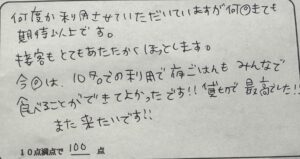 何度か利用させていただいていますが何回きても
期待以上です。
接客もとてもあたたかくほっとします。
今回は、10名での利用で夜ごはんもみんなで
食べることができてよかったです!! 貸切で最高でした!!
また来たいです!!
10点満点で 100 点